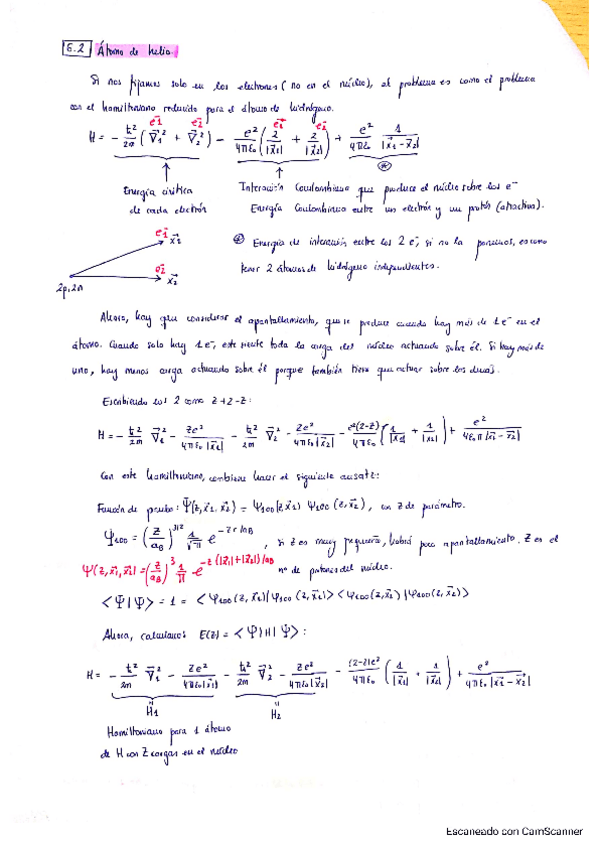 6.2 Átomo de helio.
Si nos fijamos solo en los electrones (no en el núcleo), el problema es como el problema
con el hamiltoniano reducido para el átomo de hidrógeno.
e⃗1 e⃗2 e⃗1 e⃗2
H = - ℏ²/2m (∇⃗₁² + ∇⃗₂²) - e²/4πε₀ (2/|x⃗₁| + 2/|x⃗₂|) + e²/4πε₀ 1/|x⃗₁-x⃗₂|
Energía cinética
de cada electrón
Interacción Coulombiana que produce el núcleo sobre los e⁻
Energía Coulombiana entre un electrón y un protón (atractiva).
e⃗1 x⃗₁
e⃗2 x⃗₂
2p, 2n
⊛ Energía de interacción entre los 2 e⁻, si no la ponemos, es como
tener 2 átomos de hidrógeno independientes.
Ahora, hay que considerar el apantallamiento, que se produce cuando hay más de 1e⁻ en el
átomo. Cuando solo hay 1e⁻, este siente toda la carga del núcleo actuando sobre él. Si hay más de
uno, hay menos carga actuando sobre él porque también tiene que actuar sobre los demás.
Escribiendo los 2 como Z+2-Z:
H = - ℏ²/2m ∇⃗₁² - Ze²/4πε₀|x⃗₁| - ℏ²/2m ∇⃗₂² - Ze²/4πε₀|x⃗₂| - e²(2-Z)/4πε₀ (1/|x⃗₁| + 1/|x⃗₂|) + e²/4πε₀|x⃗₁-x⃗₂|
Con este hamiltoniano, conviene hacer el siguiente ansatz:
Función de prueba: Ψ(Z, x⃗₁, x⃗₂) = Ψ₁₀₀(Z, x⃗₁) Ψ₁₀₀(Z, x⃗₂), con Z de parámetro.
Ψ₁₀₀ = (Z/a_B)^3/2 1/√π e^-Zr/a_B, si Z es muy pequeña, habrá poco apantallamiento. Z es el
Ψ(Z, x⃗₁, x⃗₂) = (Z/a_B)³ 1/π e^-Z(|x⃗₁|+|x⃗₂|)/a_B nº de protones del núcleo.
<Ψ|Ψ> = 1 = <φ₁₀₀(Z, x⃗₁)|φ₁₀₀(Z, x⃗₁)><φ₁₀₀(Z, x⃗₂)|φ₁₀₀(Z, x⃗₂)>
Ahora, calculamos E(Z) = <Ψ|H|Ψ>:
H = - ℏ²/2m ∇⃗₁² - Ze²/4πε₀|x⃗₁| - ℏ²/2m ∇⃗₂² - Ze²/4πε₀|x⃗₂| - (2-Z)e²/4πε₀ (1/|x⃗₁| + 1/|x⃗₂|) + e²/4πε₀|x⃗₁-x⃗₂|
H1 H2
Hamiltoniano para 1 átomo
de H con Z cargas en el núcleo
Escaneado con CamScanner